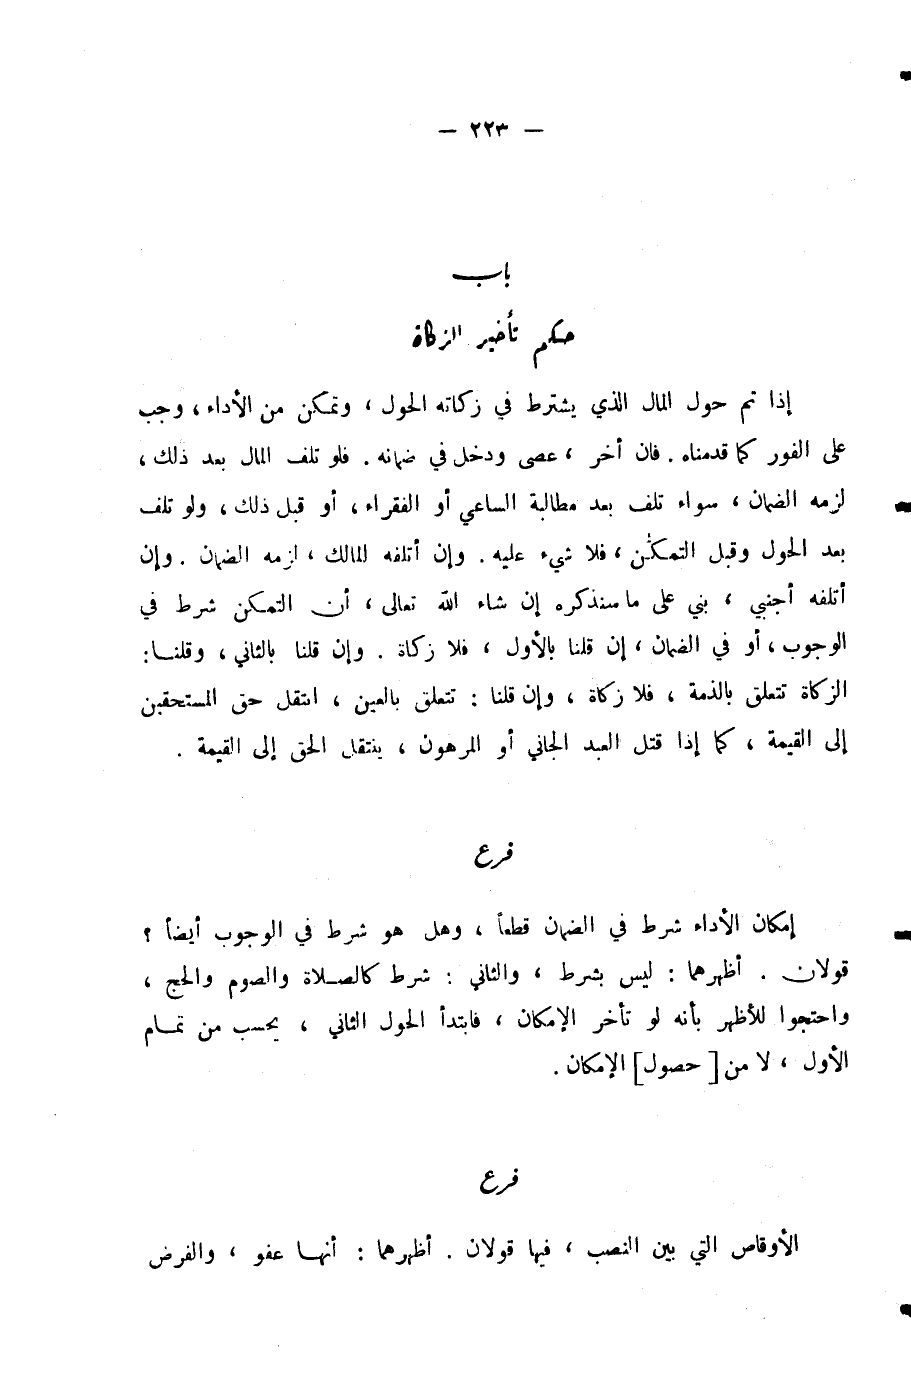 — ٢٢٣ —
باب
حكم تأخير الزكاة
إذا تم حول المال الذي يشترط في زكاته الحول ، وتمكن من الأداء ، وجب
على الفور كما قدمناه . فان أخر ، عصى ودخل في ضمانه . فلو تلف المال بعد ذلك ،
لزمه الضمان ، سواء تلف بعد مطالبة الساعي أو الفقراء ، أو قبل ذلك ، ولو تلف
بعد الحول وقبل التمكن ، فلا شيء عليه . وإن أتلفه المالك ، لزمه الضمان . وإن
أتلفه أجنبي ، بني على ما سنذكره إن شاء الله تعالى ، أن التمكن شرط في
الوجوب ، أو في الضمان ، إن قلنا بالأول ، فلا زكاة . وإن قلنا بالثاني ، وقلنا :
الزكاة تتعلق بالذمة ، فلا زكاة ، وإن قلنا : تتعلق بالعين ، انتقل حق المستحقين
إلى القيمة ، كما إذا قتل العبد الجاني أو المرهون ، ينتقل الحق إلى القيمة .
فرع
إمكان الأداء شرط في الضمان قطعاً ، وهل هو شرط في الوجوب أيضاً ؟
قولان . أظهرهما : ليس بشرط ، والثاني : شرط كالصلاة والصوم والحج ،
واحتجوا للأظهر بأنه لو تأخر الإمكان ، فابتدأ الحول الثاني ، يحسب من تمام
الأول ، لا من [ حصول ] الإمكان .
فرع
الأوقاص التي بين النصب ، فيها قولان . أظهرهما : أنها عفو ، والفرض